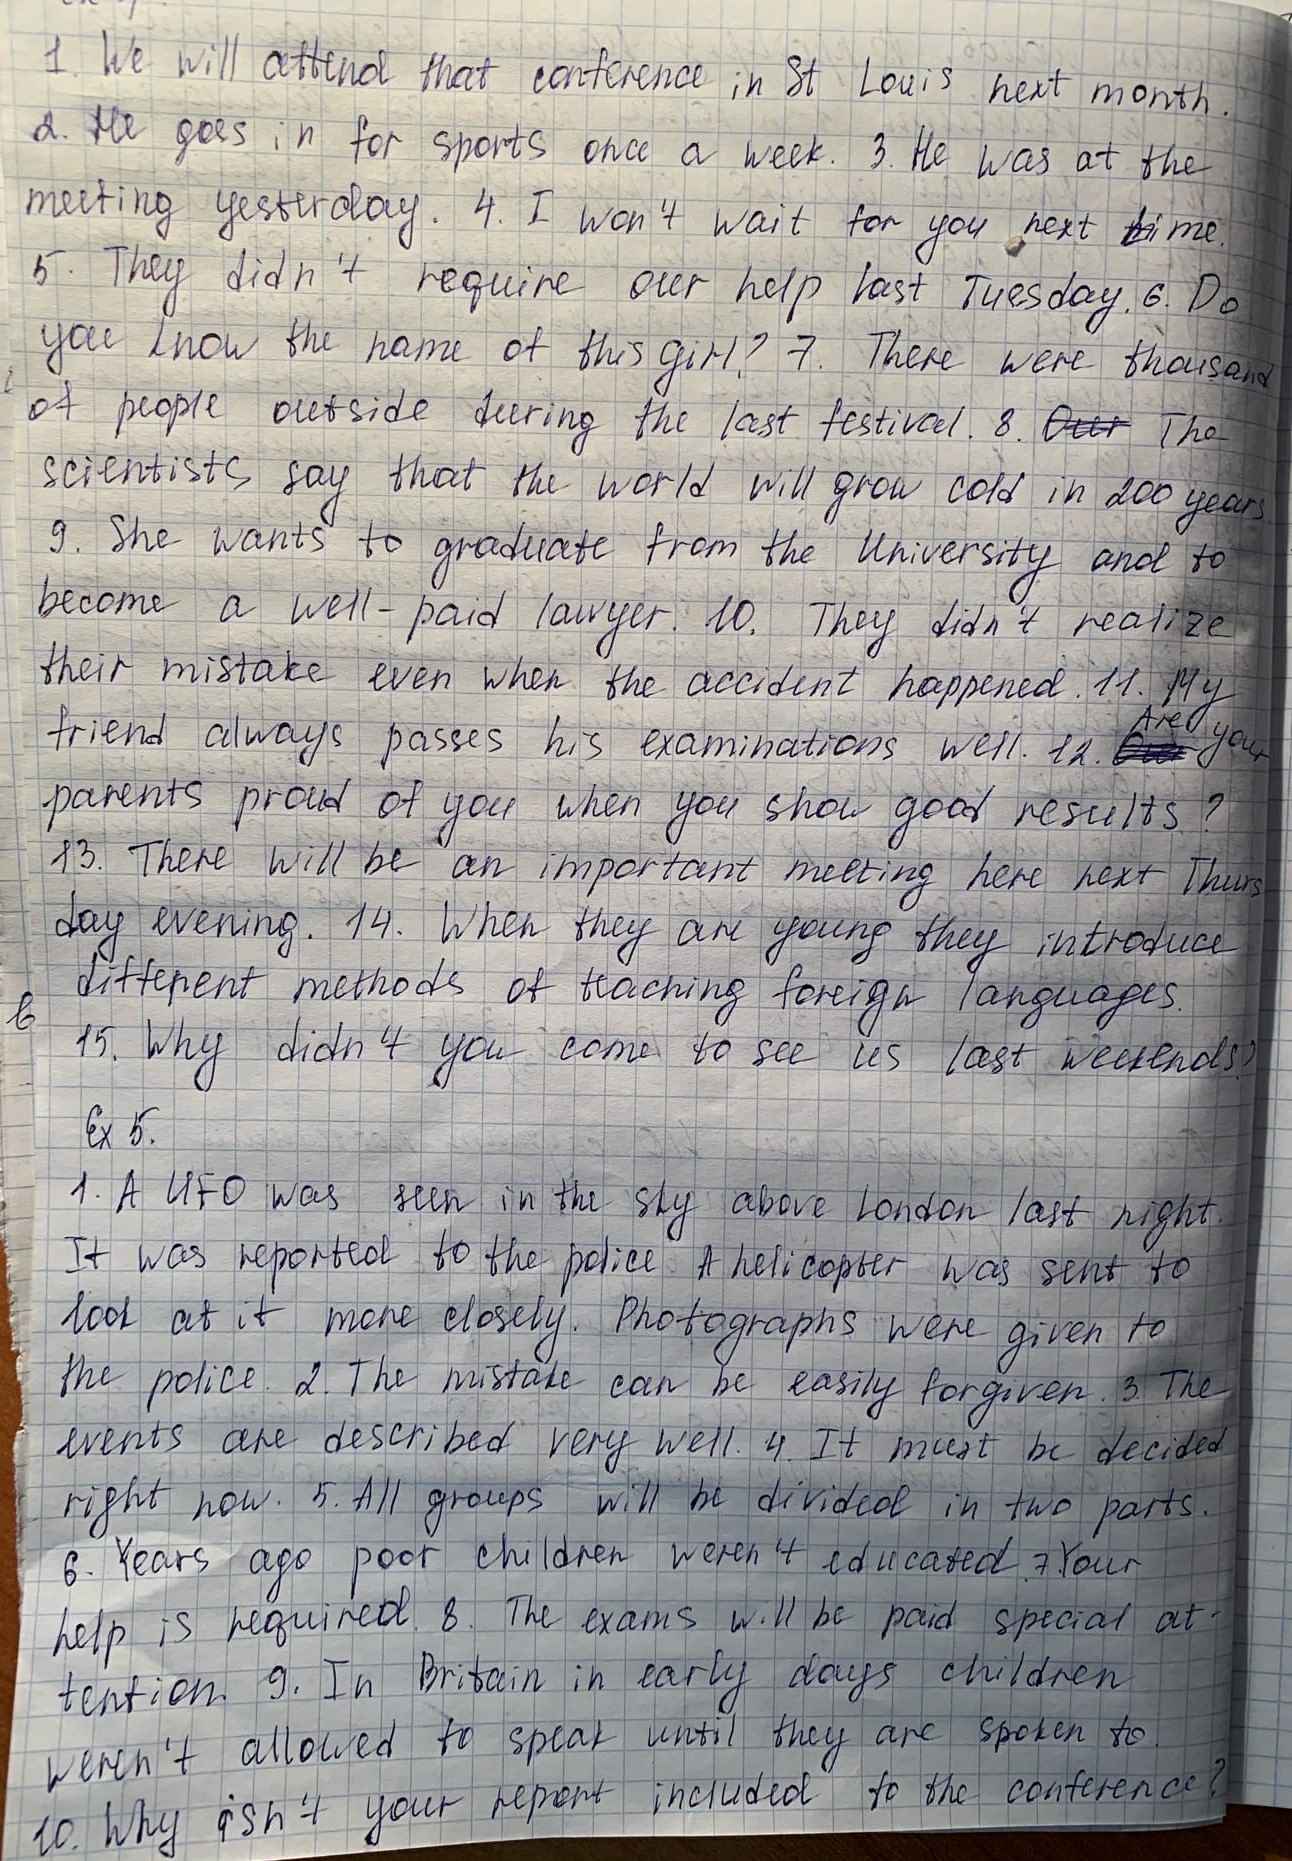 1. We will attend that conference in St Louis next month.
2. He goes in for sports once a week. 3. He was at the
meeting yesterday. 4. I won't wait for you next time.
5. They didn't require our help last Tuesday. 6. Do
you know the name of this girl? 7. There were thousand
of people outside during the last festival. 8. Our The
scientists say that the world will grow cold in 200 years
9. She wants to graduate from the University and to
become a well-paid lawyer. 10. They didn't realize
their mistake even when the accident happened. 11. My
friend always passes his examinations well. 12. Are your
parents proud of you when you show good results?
13. There will be an important meeting here next Thurs
day evening. 14. When they are young they introduce
different methods of teaching foreign languages.
15. Why didn't you come to see us last weekends?
Ex 5.
1. A UFO was seen in the sky above London last night.
It was reported to the police. A helicopter was sent to
look at it more closely. Photographs were given to
the police. 2. The mistake can be easily forgiven. 3. The
events are described very well. 4. It must be decided
right now. 5. All groups will be divided in two parts.
6. Years ago poor children weren't educated. 7. Your
help is required. 8. The exams will be paid special at-
tention. 9. In Britain in early days children
weren't allowed to speak until they are spoken to.
10. Why isn't your report included to the conference?